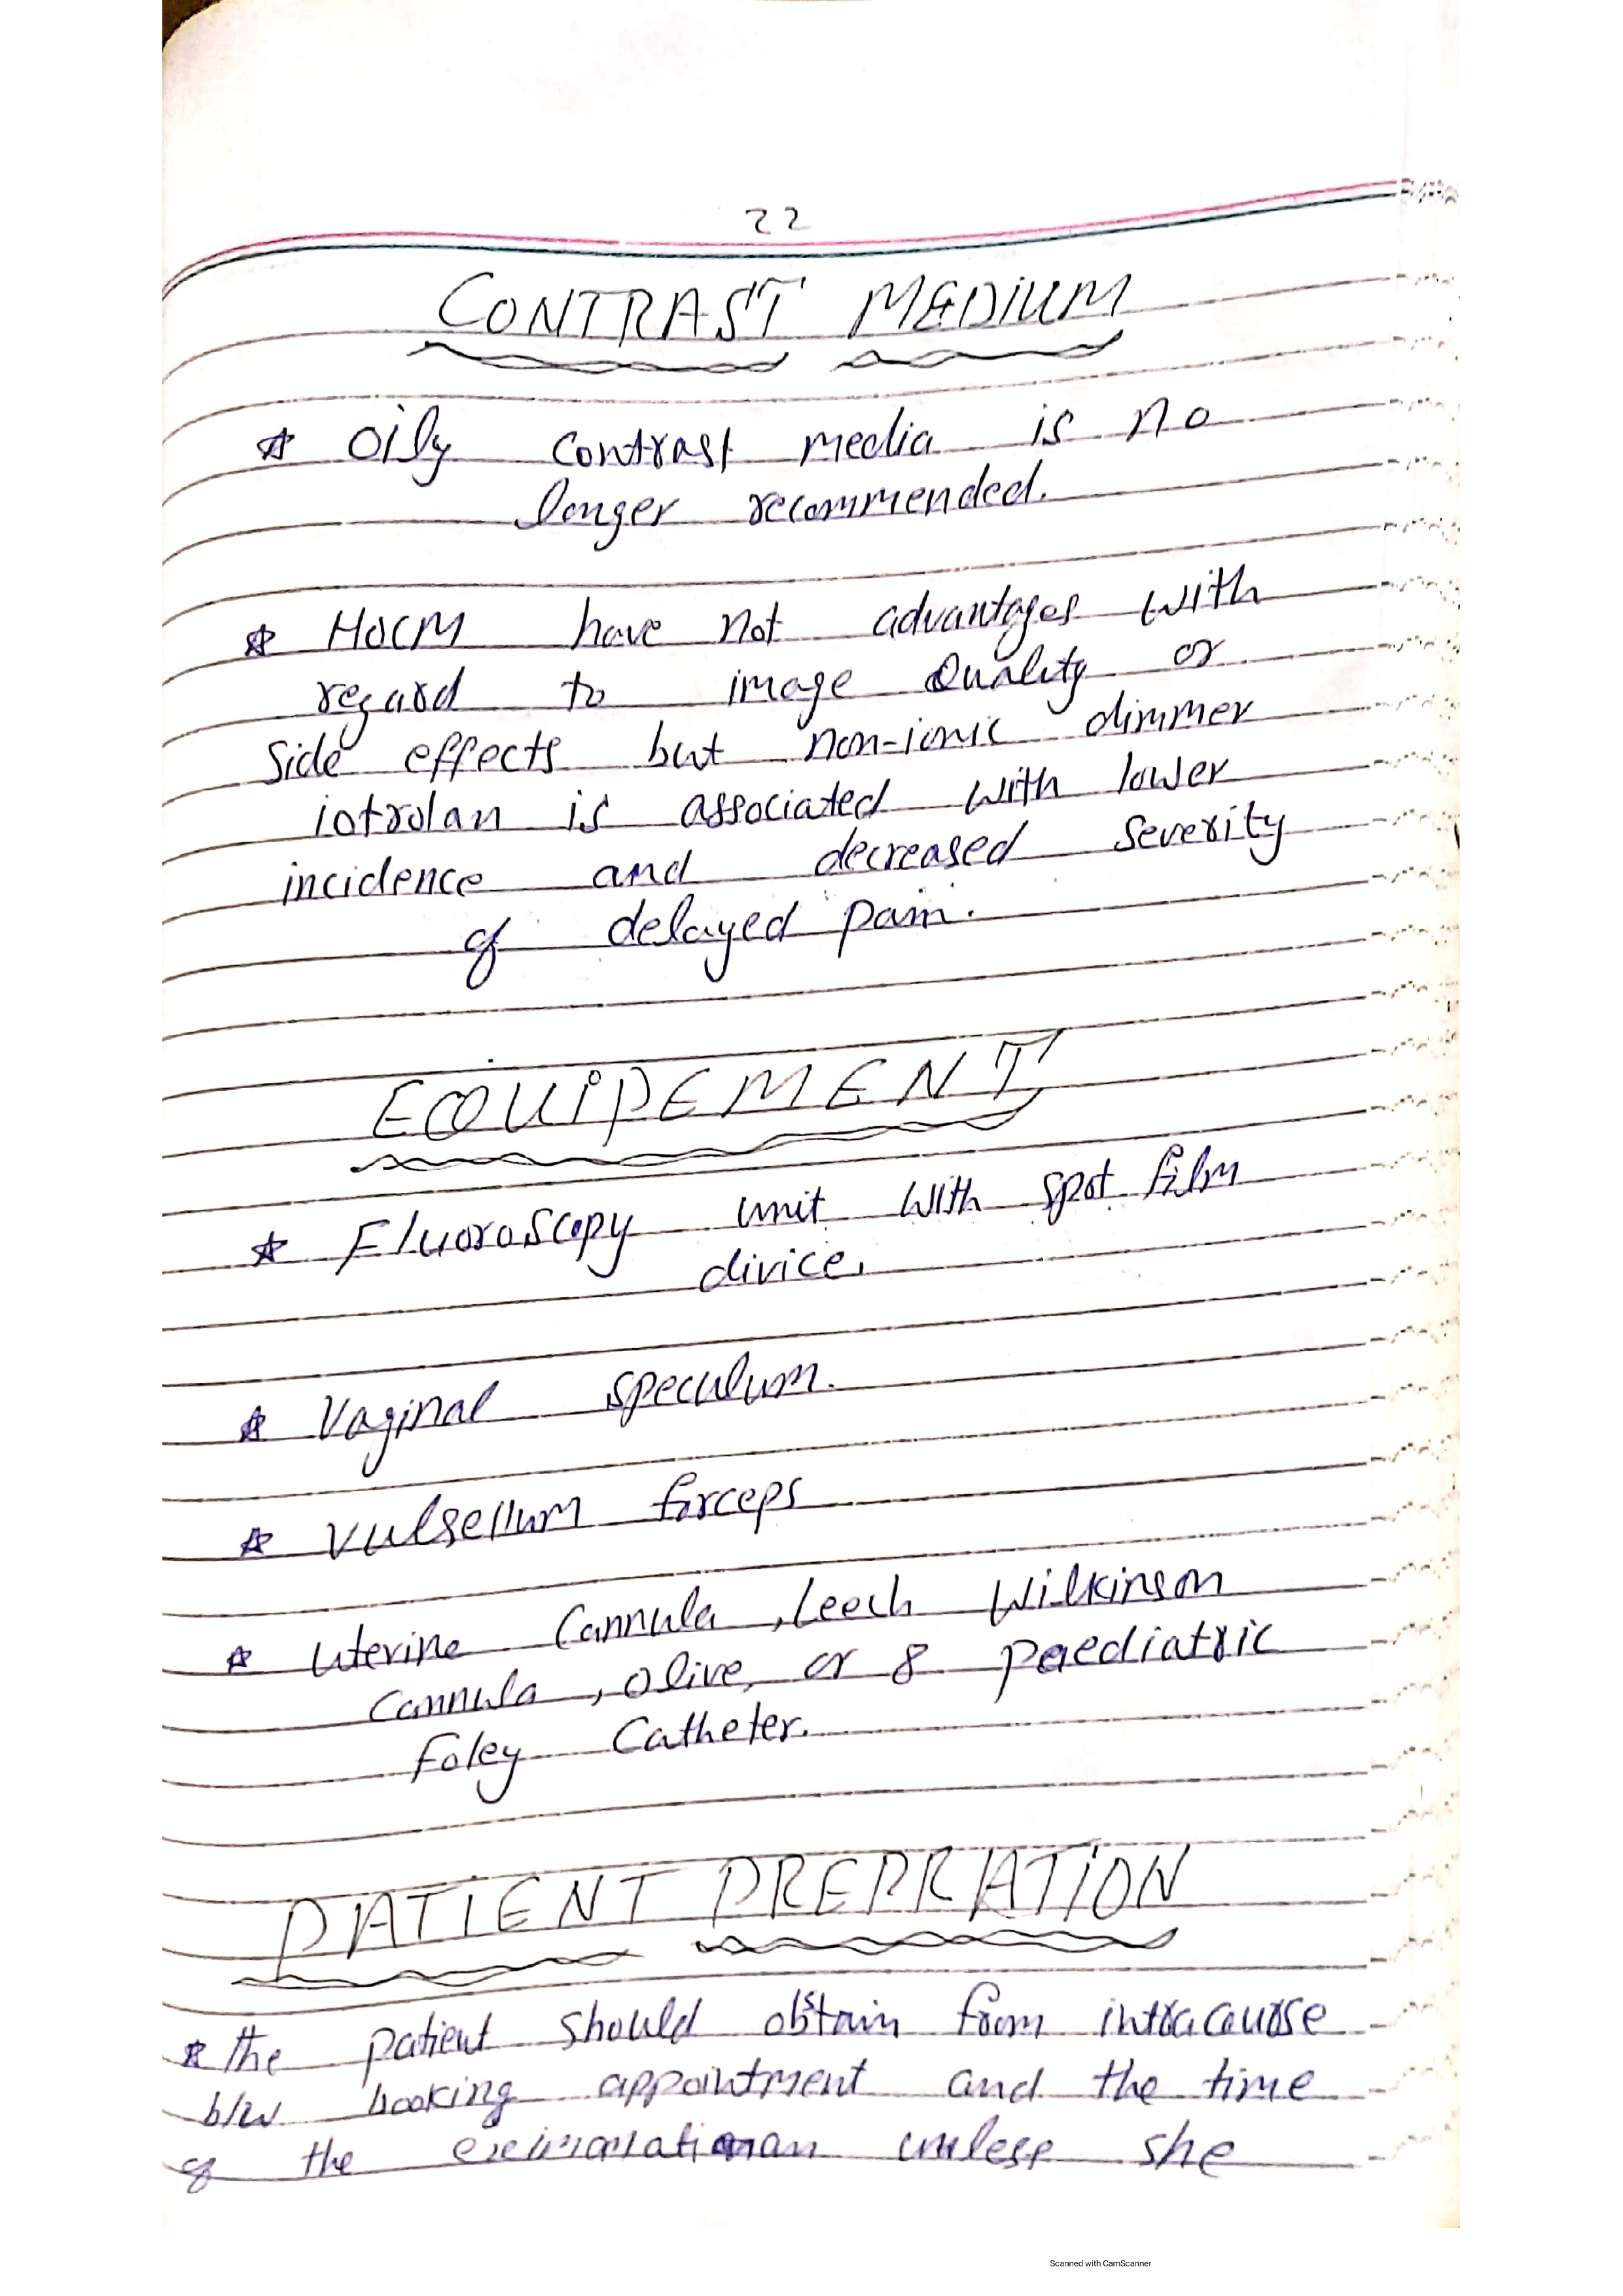 22
CONTRAST MEDIUM
* Oily contrast media is no
longer recommended.
* HOCM have not advantages with
regard to image Quality or
Side effects but non-ionic dimmer
iotrolan is associated with lower
incidence and decreased severity
of delayed pain.
EQUIPEMENT
* Fluoroscopy unit with spot film
divice.
* Vaginal speculum.
* Vulsellum forceps
* Uterine Cannula, Leech Wilkinson
Cannula, olive, or 8 paediatric
Foley Catheter.
PATIENT PREPRATION
* the patient should obstain from intracourse
b/w booking appointment and the time
of the unless she
Scanned with CamScanner